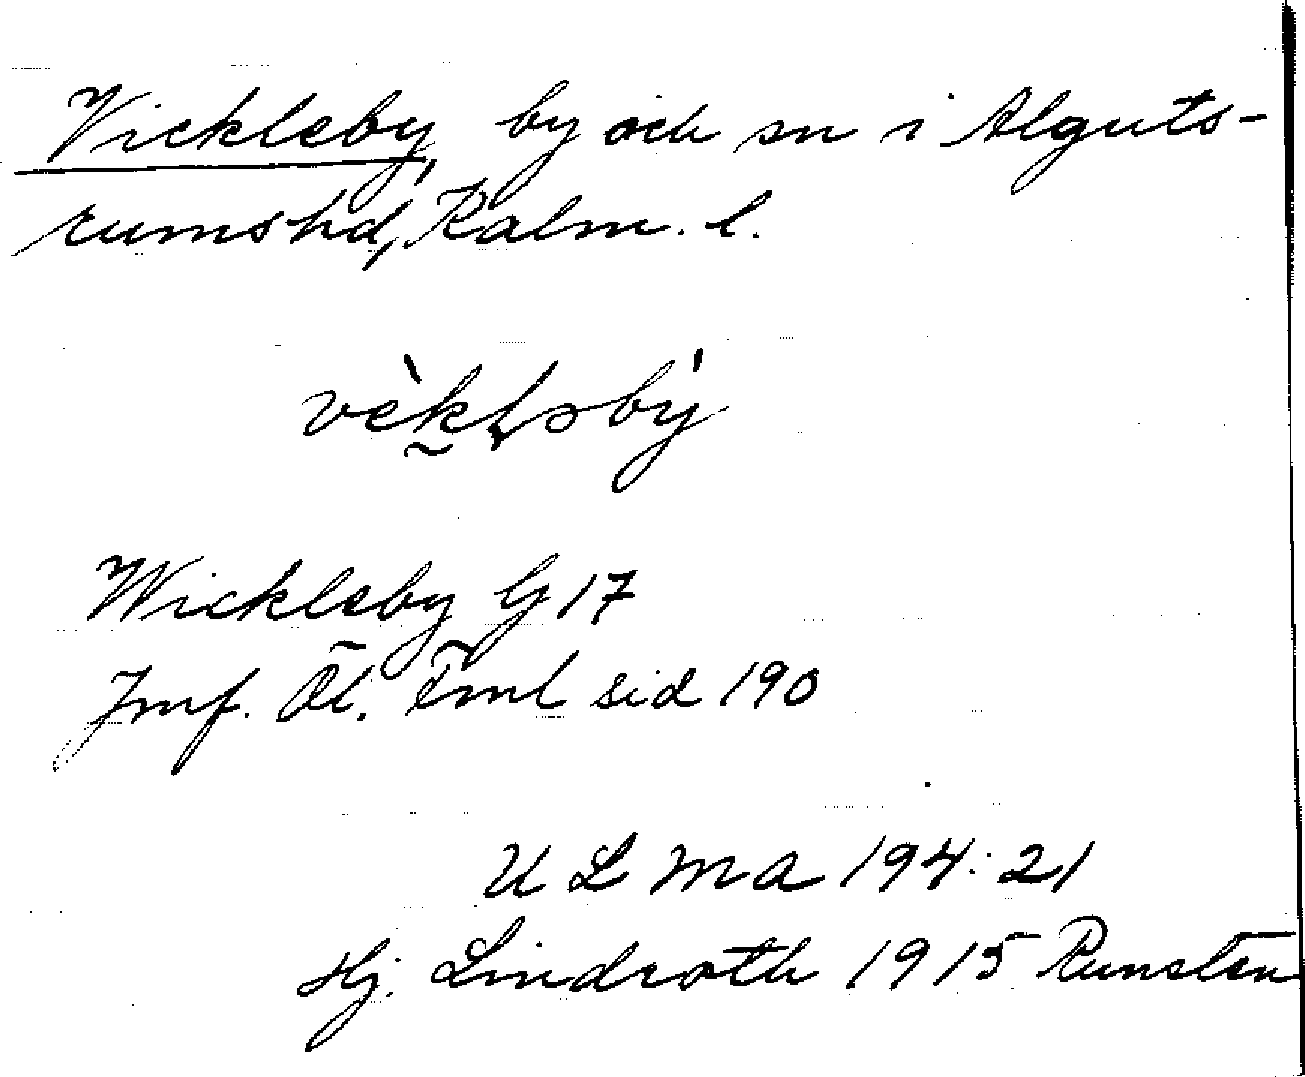 Vickleby, by och sn i Alguts-
rumshd, Kalm. l.
vèkləbý
Wickleby G 17
Jmf. Öl. Fml sid 190
U L M a 194:21
Hj. Lindroth 1915 Runsten